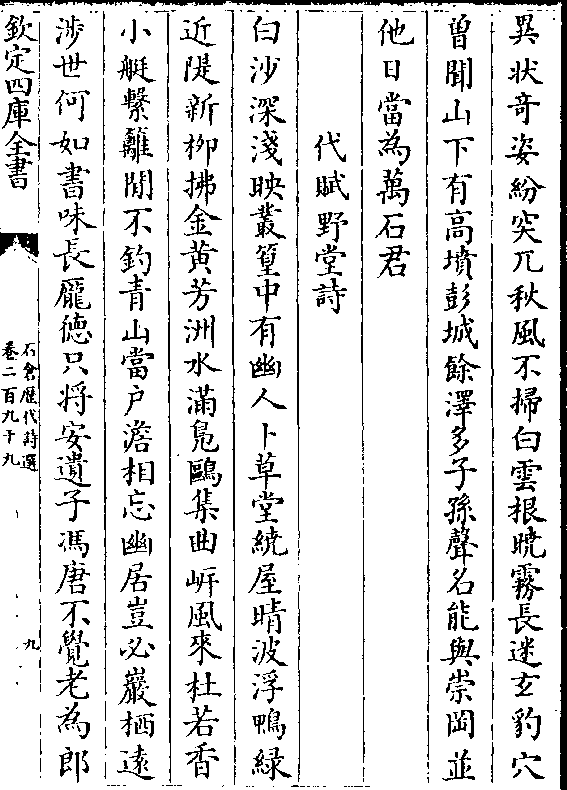 異狀奇姿紛突兀秋風不掃白雲根曉霧長迷玄豹穴
曽聞山下有高墳彭城餘澤多子孫聲名能與崇岡並
他日當為萬石君
代賦野堂詩
白沙深淺映叢篁中有幽人卜草堂繞屋晴波浮鴨緑
近隄新栁拂金黄芳洲水滿鳬鷗集曲㟁風來杜若香
小艇繫籬閒不釣青山當户澹相忘幽居豈必巖栖遠
涉世何如書味長龎德只將安遺子馮唐不覺老為郎
欽定四庫全書
石倉歷代詩選
卷二百九十九
九